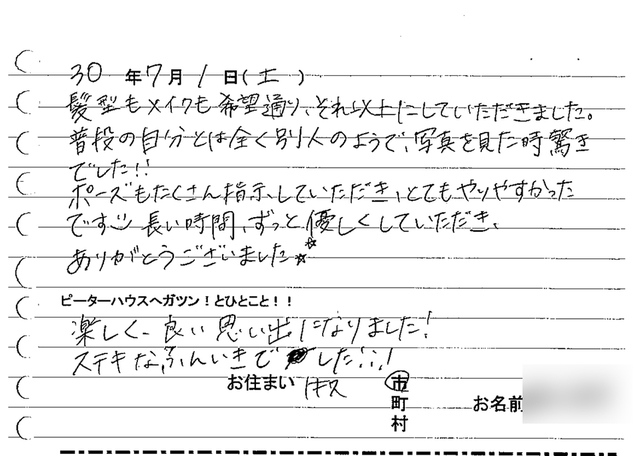 30 年 7 月 1 日(土)
髪型もメイクも希望通り、それ以上にしていただきました。
普段の自分とは全く別人のようで、写真を見た時驚き
でした!!
ポーズもたくさん指示していただき、とてもやりやすかった
です 長い時間、ずっと優しくしていただき、
ありがとうございました☆☆
ピーターハウスへガツン!とひとこと!!
楽しく、良い思い出になりました!
ステキなふんいきで した!
お住まい 市
町
村
お名前